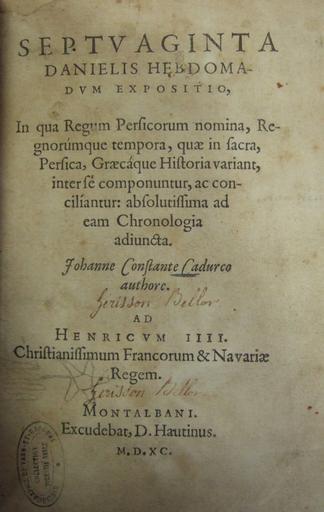 SEPTVAGINTA
DANIELIS HEBDOMA-
DVM EXPOSITIO,
In qua Regum Persicorum nomina, Re-
gnorúmque tempora, quæ in sacra,
Persica, Græcáque Historia variant,
inter sé componuntur, ac con-
ciliantur: absolutissima ad
eam Chronologia
adiuncta.
Johanne Constante Cadurco
authore.
Gerisson Bellor
AD
HENRICVM IIII.
Christianissimum Francorum & Navariæ
Regem.
Gerisson Bellor
MONTALBANI.
Excudebat, D. Hautinus.
M.D.XC.